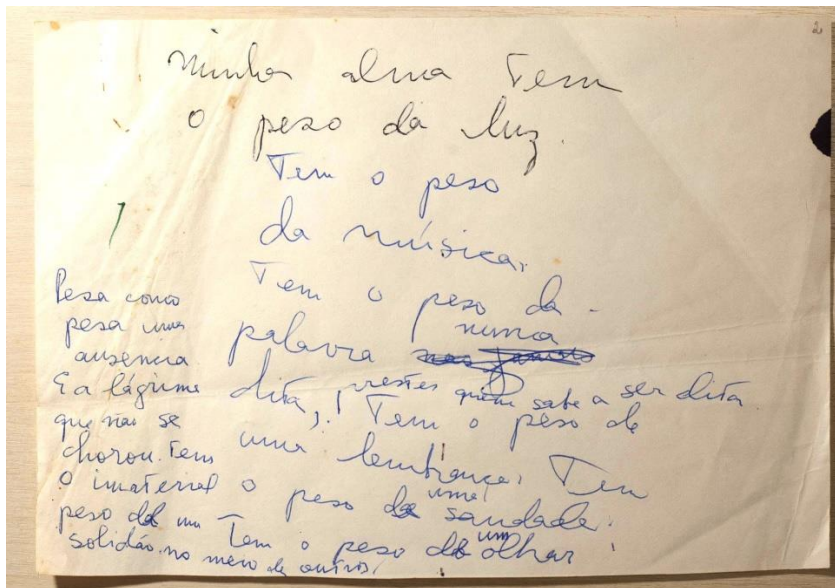 2
minha alma tem
o peso da luz.
Tem o peso
da música.
Tem o peso da
palavra nunca
dita, prestes quem sabe a ser dita.
Tem o peso de
uma lembrança. Tem
o peso de uma saudade.
Tem o peso de um olhar.
Pesa como
pesa uma
ausencia.
E a lágrima
que não se
chorou. Tem
o imaterial
peso de um
solidão no meio de outros.